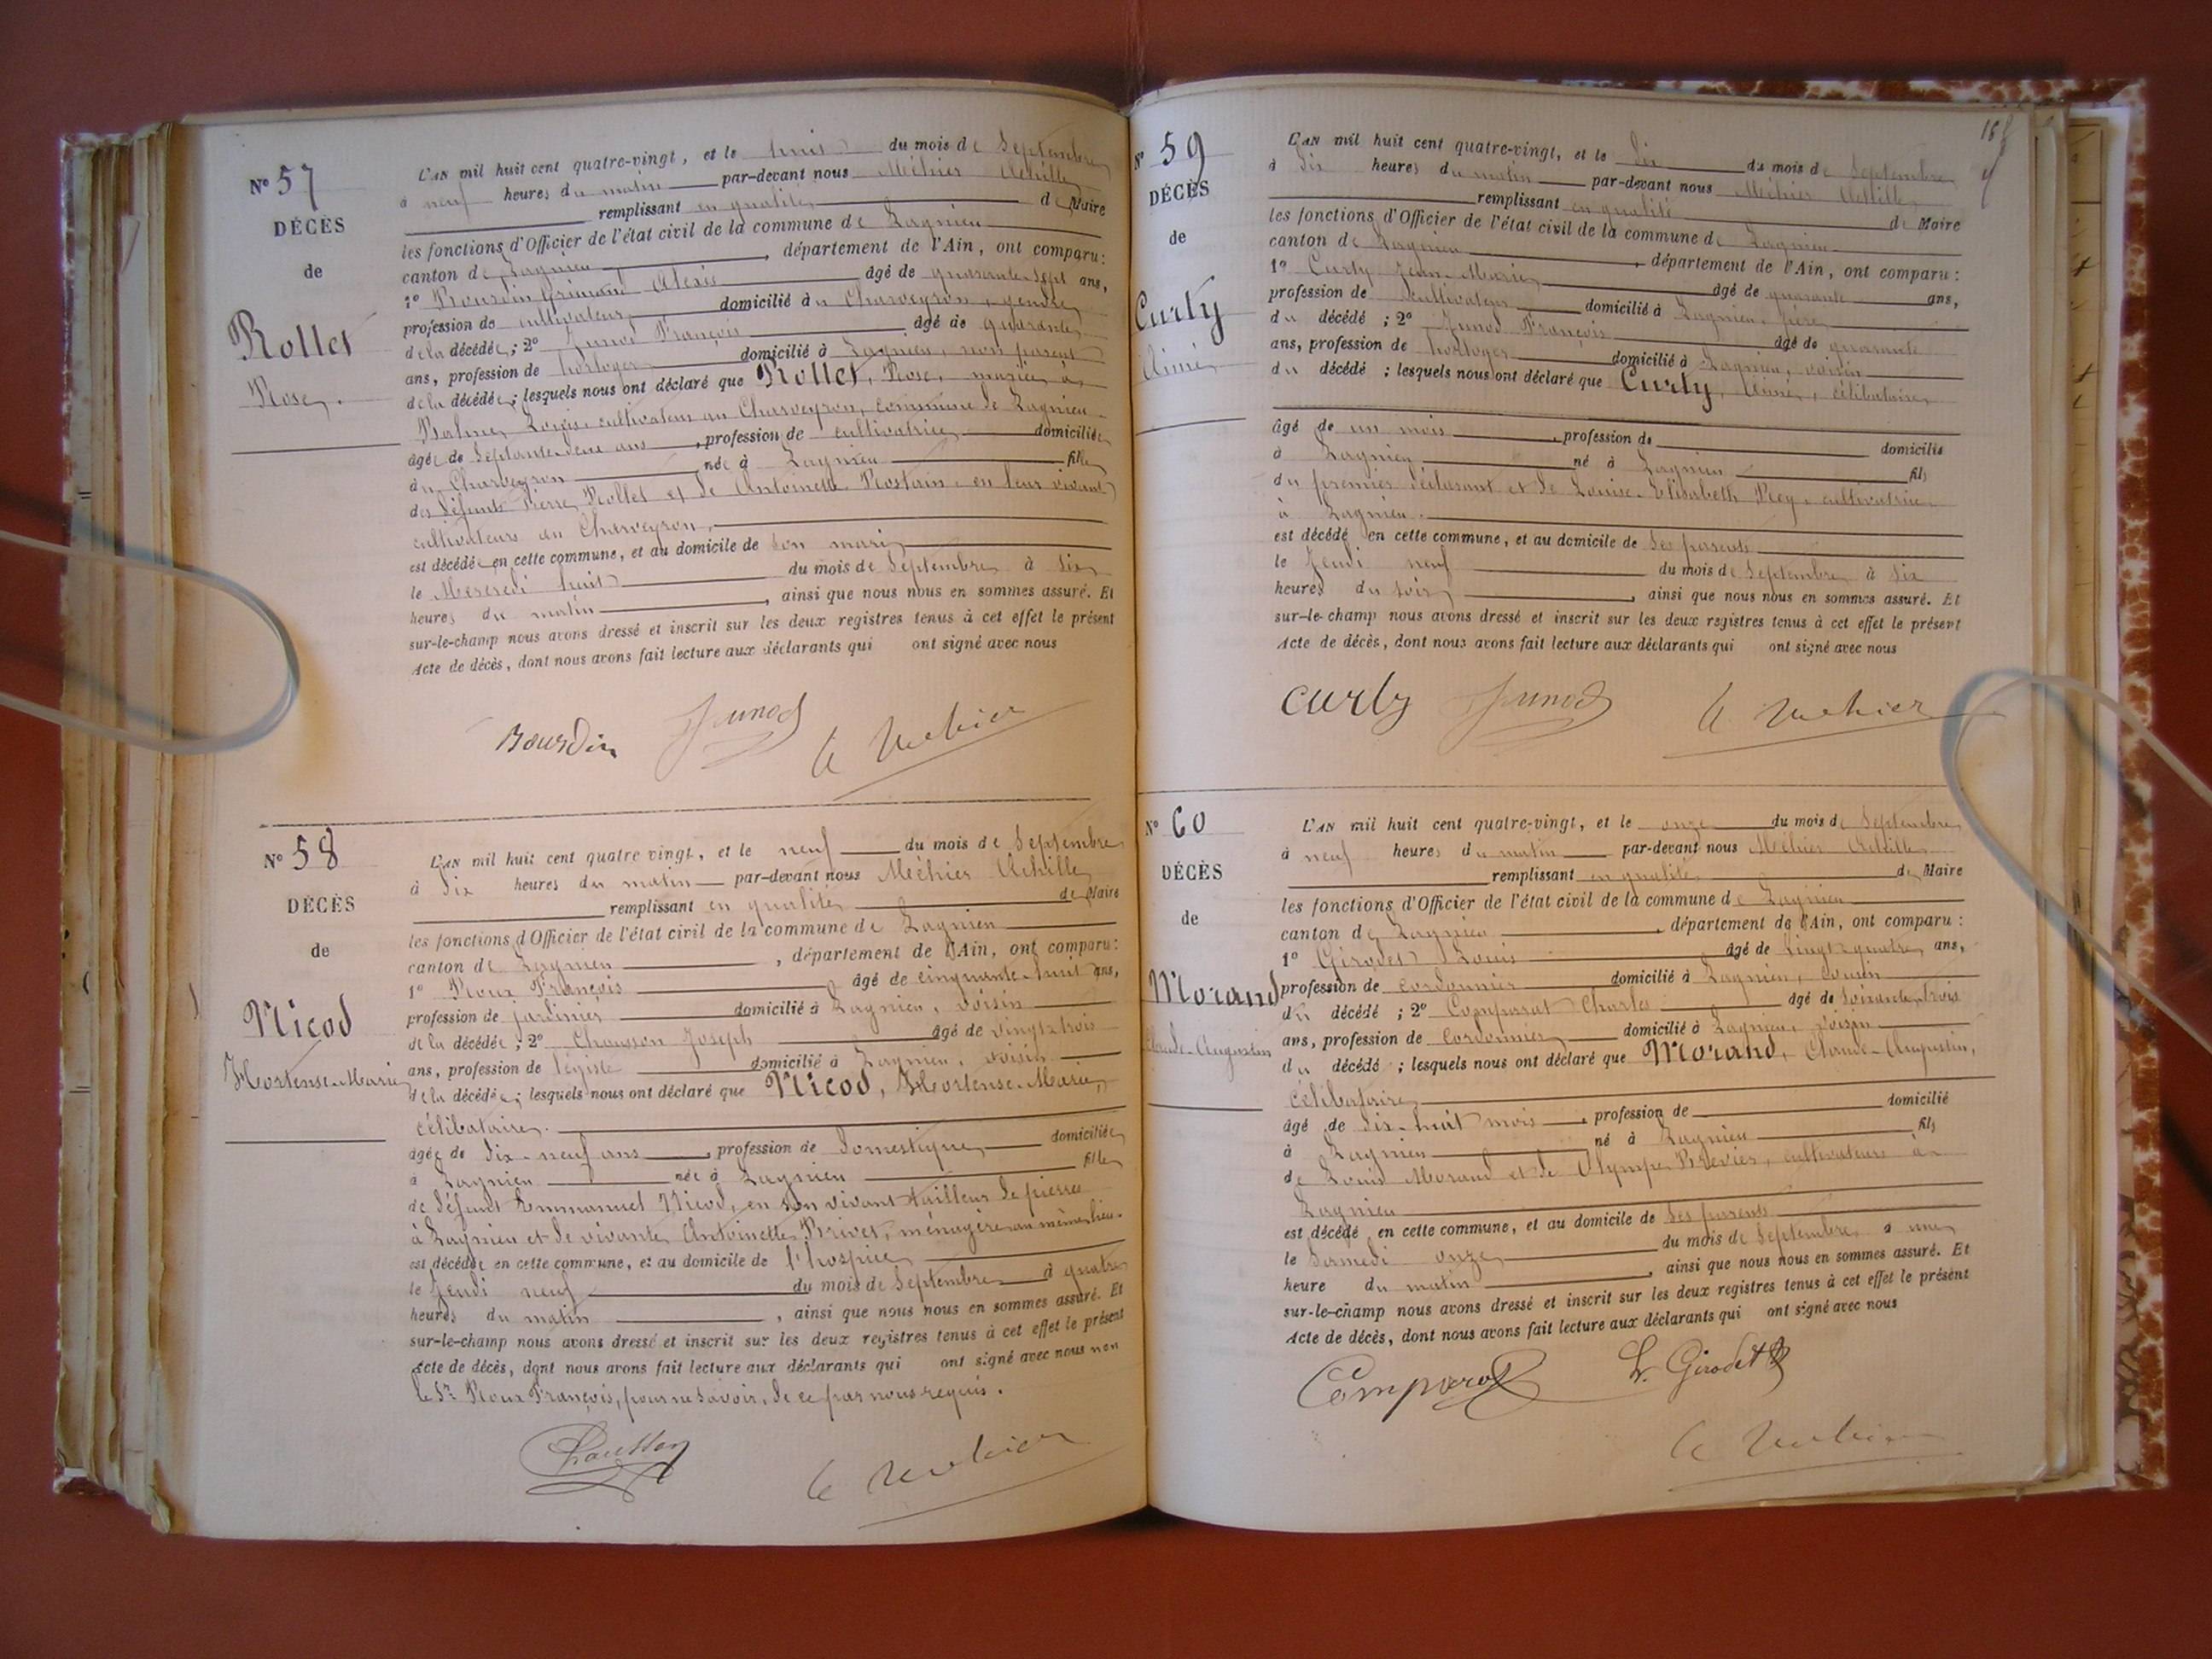 N° 57
DÉCÈS
de
Rollet
Rose.
L'AN mil huit cent quatre-vingt, et le huit du mois de Septembre
à neuf heures du matin par-devant nous Méhier Achille
remplissant en qualité de Maire
les fonctions d'Officier de l'état civil de la commune de Lagnieu
canton de Lagnieu, département de l'Ain, ont comparu:
1° Bourdin Grimaud Alexis âgé de quarante-sept ans,
profession de cultivateur domicilié à u Charveyron, gendre
de la décédée; 2° Junod François âgé de quarante
ans, profession de horloger domicilié à Lagnieu, non parent
de la décédée; lesquels nous ont déclaré que Rollet, Rose, mariée à
Balme, cultivateur au Charveyron, commune de Lagnieu
âgée de Septante-deux ans, profession de cultivatrice domiciliée
au Charveyron, née à Lagnieu fille
des défunts Pierre Rollet et de Antoinette Rostain, en leur vivant
cultivateurs au Charveyron,
est décédée en cette commune, et au domicile de son mari
le Mercredi huit du mois de Septembre à six
heures du matin, ainsi que nous nous en sommes assuré. Et
sur-le-champ nous avons dressé et inscrit sur les deux registres tenus à cet effet le présent
Acte de décès, dont nous avons fait lecture aux déclarants qui ont signé avec nous
Bourdin Junod A Mehier
N° 58
DÉCÈS
de
Nicod
Hortense-Marie
L'AN mil huit cent quatre vingt, et le neuf du mois de Septembre
à dix heures du matin par-devant nous Méhier Achille
remplissant en qualité de Maire
les fonctions d'Officier de l'état civil de la commune de Lagnieu
canton de Lagnieu, département de l'Ain, ont comparu:
1° Roux François âgé de cinquante-huit ans,
profession de jardinier domicilié à Lagnieu, voisin
de la décédée; 2° Chausson Joseph âgé de vingt-trois
ans, profession de légiste domicilié à Lagnieu, voisin
de la décédée; lesquels nous ont déclaré que Nicod, Hortense-Marie,
célibataire.
âgée de dix-neuf ans, profession de domestique domiciliée
à Lagnieu née à Lagnieu fille
de défunt Emmanuel Nicod, en son vivant tailleur de pierres
à Lagnieu et de vivante Antoinette Privet, ménagère au même lieu.
est décédée en cette commune, et au domicile de l'hospice
le Jeudi neuf du mois de Septembre à quatre
heures du matin, ainsi que nous nous en sommes assuré. Et
sur-le-champ nous avons dressé et inscrit sur les deux registres tenus à cet effet le présent
Acte de décès, dont nous avons fait lecture aux déclarants qui ont signé avec nous non
le Sr Roux François, pour ne savoir, de ce par nous requis.
Chausson A Mehier
N° 59
DÉCÈS
de
Curly
Aimé
L'AN mil huit cent quatre-vingt, et le dix du mois de Septembre
à dix heures du matin par-devant nous Méhier Achille
remplissant en qualité de Maire
les fonctions d'Officier de l'état civil de la commune de Lagnieu
canton de Lagnieu, département de l'Ain, ont comparu:
1° Curly Jean-Marie âgé de quarante ans,
profession de cultivateur domicilié à Lagnieu, père
du décédé; 2° Junod François âgé de quarante
ans, profession de horloger domicilié à Lagnieu, voisin
du décédé; lesquels nous ont déclaré que Curly, Aimé, célibataire
âgé de un mois, profession de domicilié
à Lagnieu né à Lagnieu fils
du premier déclarant et de Louise-Elisabeth Rey, cultivatrice
à Lagnieu.
est décédé en cette commune, et au domicile de ses parents
le Jeudi neuf du mois de Septembre à six
heures du soir, ainsi que nous nous en sommes assuré. Et
sur-le-champ nous avons dressé et inscrit sur les deux registres tenus à cet effet le présent
Acte de décès, dont nous avons fait lecture aux déclarants qui ont signé avec nous
Curly Junod A Mehier
N° 60
DÉCÈS
de
Morand
Claude-Augustin
L'AN mil huit cent quatre-vingt, et le onze du mois de Septembre
à neuf heures du matin par-devant nous Méhier Achille
remplissant en qualité de Maire
les fonctions d'Officier de l'état civil de la commune de Lagnieu
canton de Lagnieu, département de l'Ain, ont comparu:
1° Girodet Louis âgé de vingt-quatre ans,
profession de cordonnier domicilié à Lagnieu, cousin
du décédé; 2° Comparat Charles âgé de soixante-trois
ans, profession de cordonnier domicilié à Lagnieu, voisin
du décédé; lesquels nous ont déclaré que Morand, Claude-Augustin,
célibataire
âgé de dix-huit mois, profession de domicilié
à Lagnieu né à Lagnieu fils
de Louis Morand et de Olympe, cultivateurs à
Lagnieu
est décédé en cette commune, et au domicile de ses parents
le Samedi onze du mois de Septembre à une
heure du matin, ainsi que nous nous en sommes assuré. Et
sur-le-champ nous avons dressé et inscrit sur les deux registres tenus à cet effet le présent
Acte de décès, dont nous avons fait lecture aux déclarants qui ont signé avec nous
Comparat L. Girodet
A Mehier